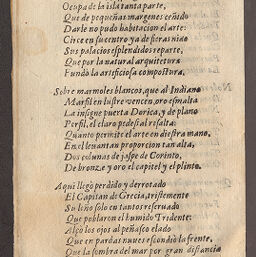 Ocupa de la isla tanta parte,
Que de pequeñas margenes ceñido
Darle no pudo habitacion el arte:
Circe en su centro ya de fieras nido
Sus palacios esplendidos reparte,
Que por la natural arquitetura
Fundò la artificiosa compostura.
Sobre marmoles blancos, que al Indiano
Marfil en lustre vencen, oro esmalta
La insigne puerta Dorica, y de plano
Perfil, el claro pedestal resalta:
Quanto permite el arte en diestra mano,
En el leuantan proporcion tan alta,
Dos colunas de jaspe de Corinto,
De bronze y oro el capitel y el plinto.
Aqui llegò perdido y derrotado
El Capitan de Grecia, tristemente
Su leño solo en tantos reseruado
Que poblaron el humido Tridente:
Alçò los ojos al peñasco elado
Que en pardas nuues escondiò la frente,
Que la sombra del mar por gran distancia